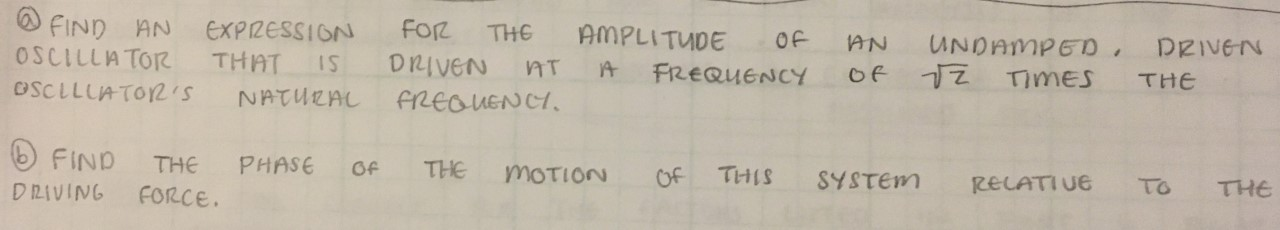 ⓐ FIND AN EXPRESSION FOR THE AMPLITUDE OF AN UNDAMPED, DRIVEN
OSCILLATOR THAT IS DRIVEN AT A FREQUENCY OF √2 TIMES THE
OSCILLATOR'S NATURAL FREQUENCY.
ⓑ FIND THE PHASE OF THE MOTION OF THIS SYSTEM RELATIVE TO THE
DRIVING FORCE.